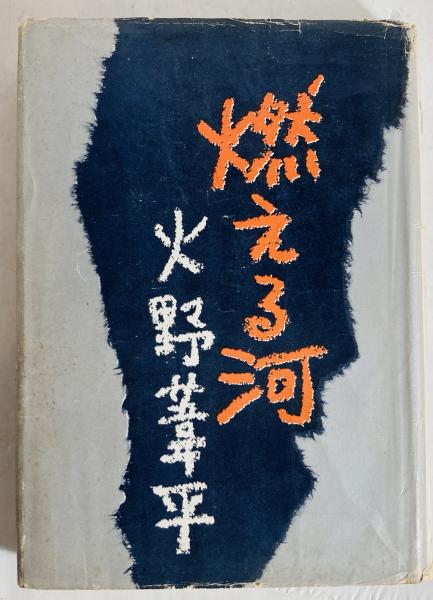 燃える河
火野葦平